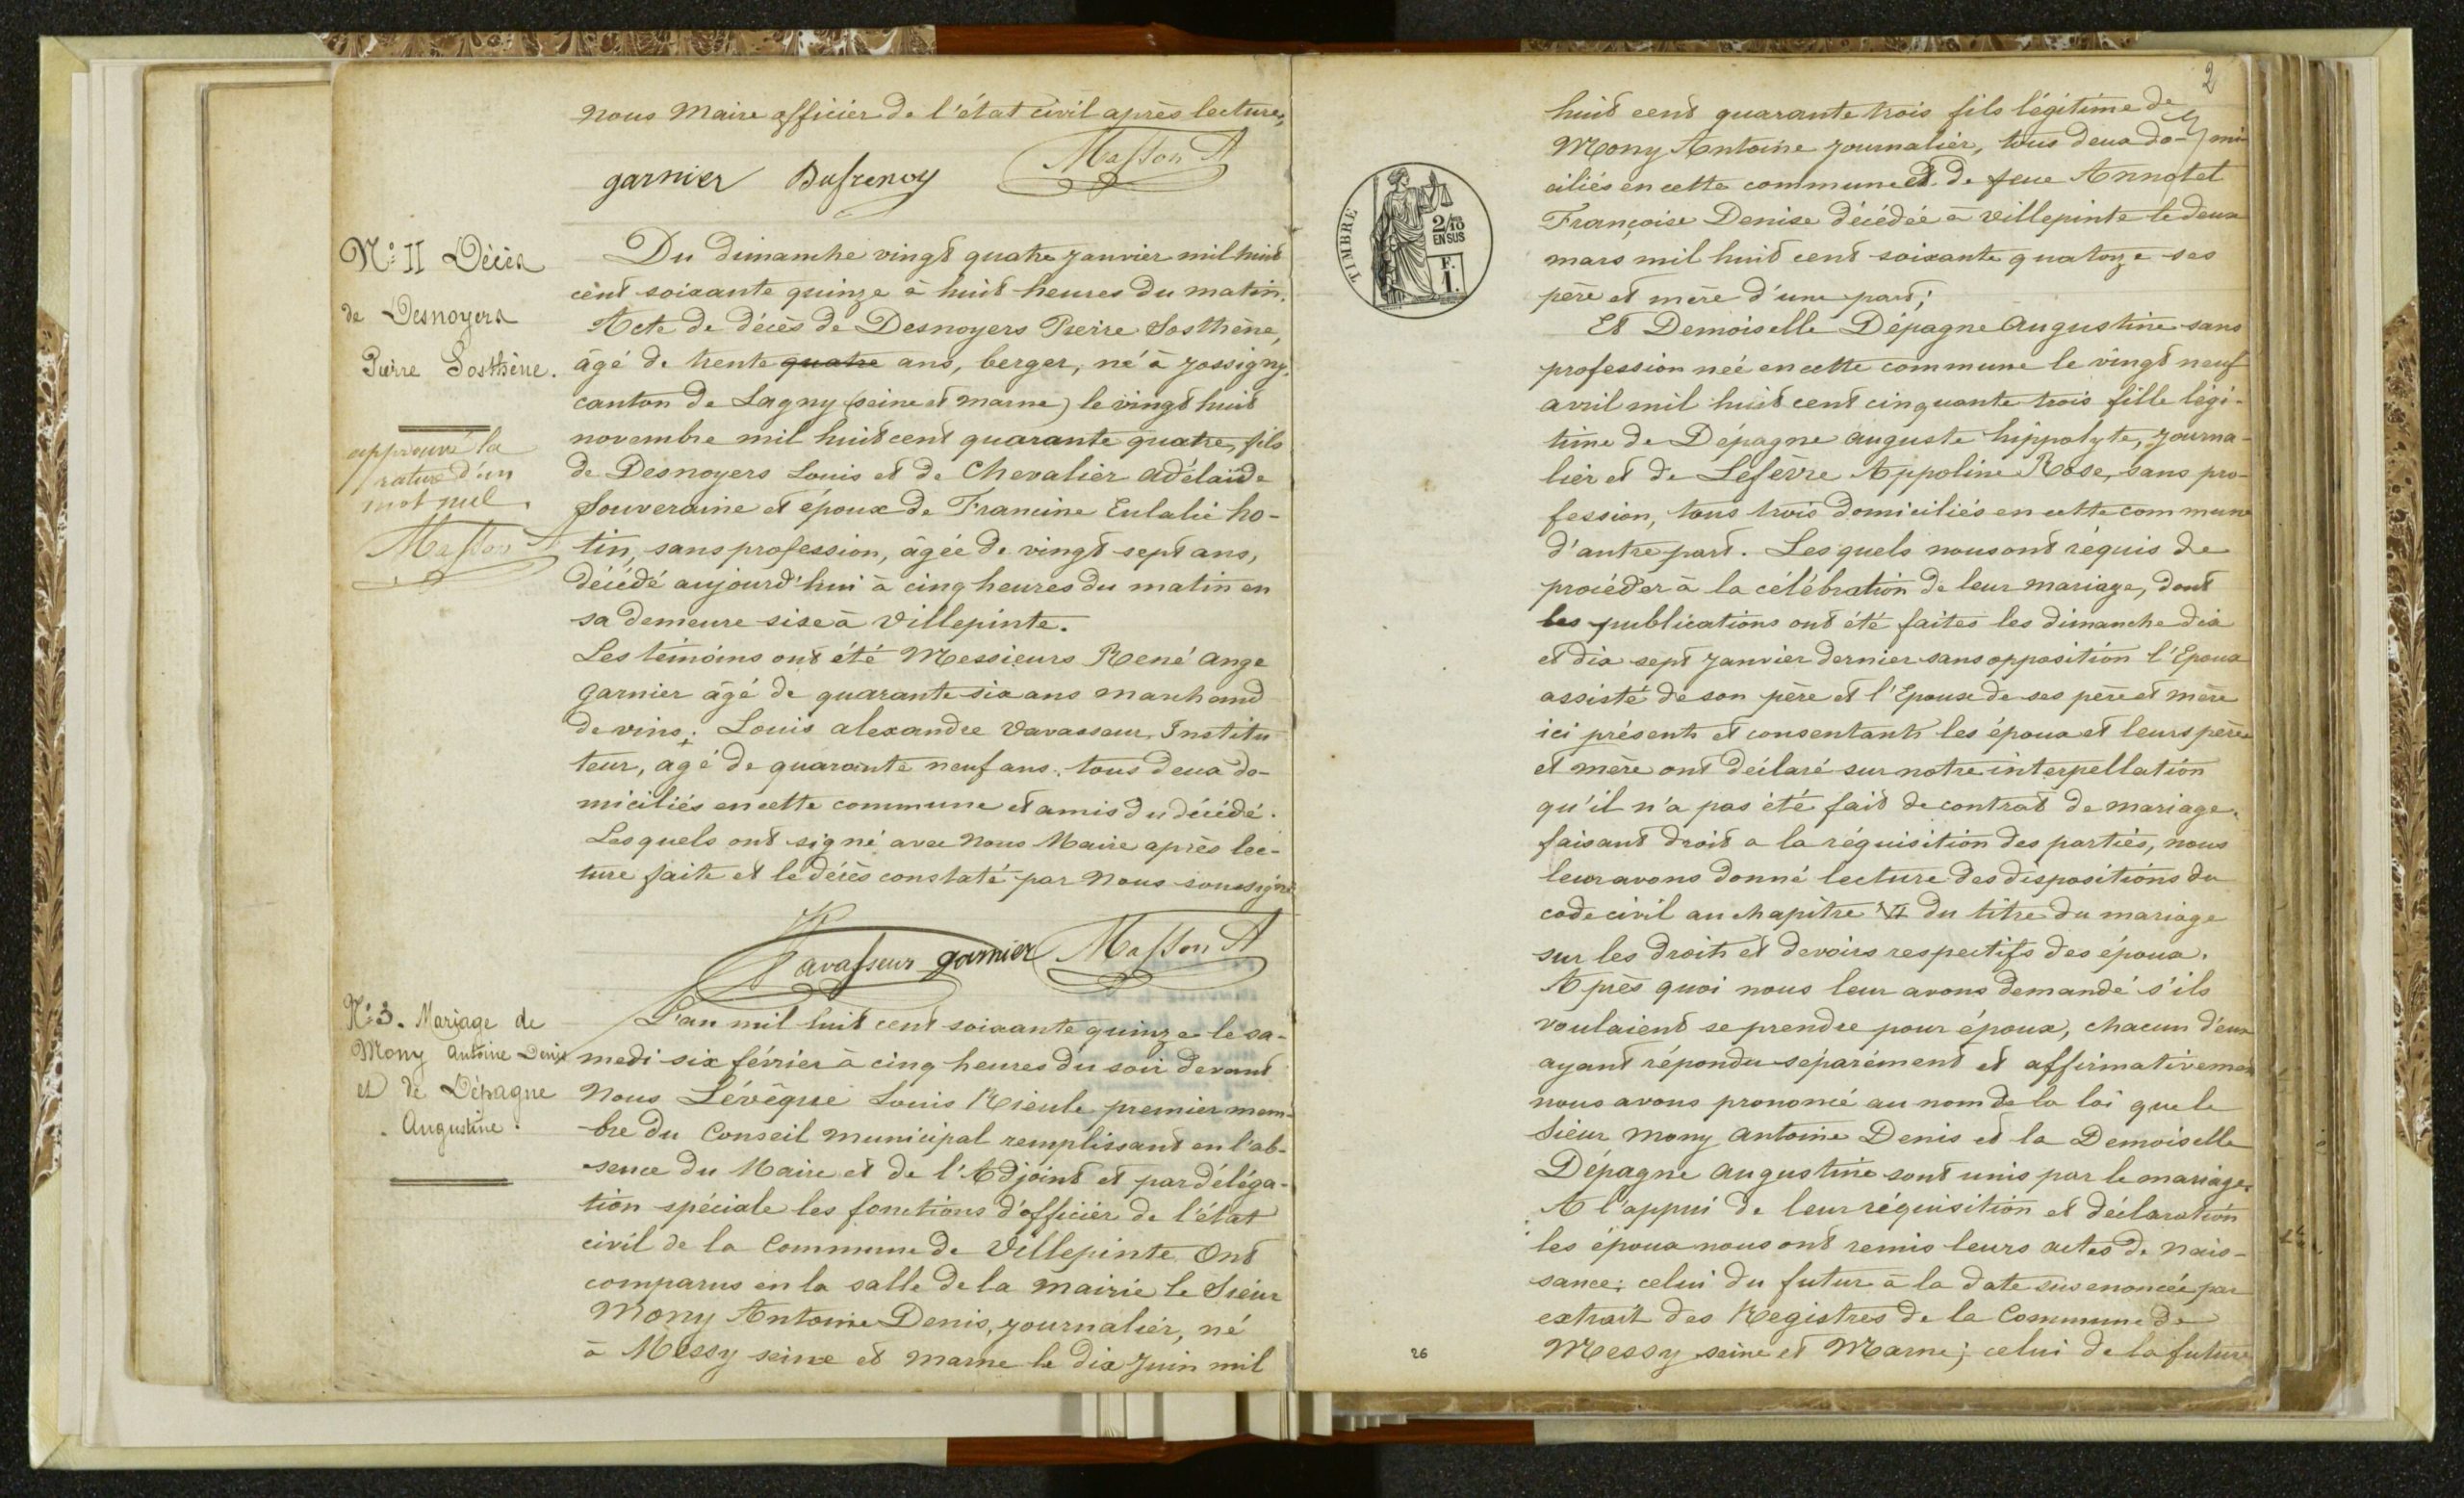 Nous Maire officier de l'état civil après lecture,
garnier Dufrenoy Masson A
N° II Décès
de Desnoyers
Pierre Sosthène.
approuvé la
rature d'un
mot nul.
Masson A
Du dimanche vingt quatre Janvier mil huit
cent soixante quinze à huit heures du matin.
Acte de décès de Desnoyers Pierre Sosthène,
âgé de trente quatre ans, berger, né à Jossigny,
canton de Lagny (seine et marne) le vingt huit
novembre mil huit cent quarante quatre, fils
de Desnoyers Louis et de Chevalier Adélaïde
Souveraine et époux de Francine Eulalie ho-
tin, sans profession, âgée de vingt sept ans,
décédé aujourd'hui à cinq heures du matin en
sa demeure sise à Villepinte.
Les témoins ont été Messieurs René Ange
Garnier âgé de quarante six ans marchand
de vins; Louis alexandre Vavasseur, Institu
teur, agé de quarante neuf ans, tous deux do-
miciliés en cette commune et amis du décédé.
Lesquels ont signé avec Nous Maire après lec-
ture faite et le décès constaté par Nous soussigné
Vavasseur garnier Masson A
N° 3. Mariage de
Mony Antoine Denis
et de Dépagne
Augustine.
L'an mil huit cent soixante quinze le sa-
medi six février à cinq heures du soir devant
Nous Lévêque Louis Rieule premier mem-
-bre du Conseil municipal remplissant en l'ab-
sence du Maire et de l'Adjoint et par déléga-
tion spéciale les fonctions d'officier de l'état
civil de la Commune de Villepinte Ont
comparus en la salle de la Mairie le Sieur
Mony Antoine Denis, journalier, né
à Messy seine et marne le dix Juin mil
2
TIMBRE
2/10
EN SUS
F.
1.
huit cent quarante trois fils légitime de
Mony Antoine journalier, tous deux do-mi
ciliés en cette commune et de feue Annotel
Françoise Denise décédée à Villepinte le deux
mars mil huit cent soixante quatorze ses
père et mère d'une part;
Et Demoiselle Dépagne Augustine sans
profession née en cette commune le vingt neuf
avril mil huit cent cinquante trois fille légi-
time de Dépagne Auguste hippolyte, journa-
lier et de Lefèvre Appoline Rose, sans pro-
fession, tous trois domiciliés en cette commune
d'autre part. Lesquels nous ont réquis de
procéder à la célébration de leur mariage, dont
les publications ont été faites les dimanche dix
et dix sept Janvier dernier sans opposition l'Epoux
assisté de son père et l'Epouse de ses père et mère
ici présents et consentants les époux et leurs pères
et mère ont déclaré sur notre interpellation
qu'il n'a pas été fait de contrat de mariage.
faisant droit a la réquisition des parties, nous
leur avons donné lecture des dispositions du
code civil au chapitre VI du titre du mariage
sur les droits et devoirs respectifs des époux.
Après quoi nous leur avons demandé s'ils
voulaient se prendre pour époux, chacun d'eux
ayant répondu séparément et affirmativement
nous avons prononcé au nom de la loi que le
Sieur Mony Antoine Denis et la Demoiselle
Dépagne Augustine sont unis par le mariage.
A l'appui de leur réquisition et déclaration
les époux nous ont remis leurs actes de Nais-
sance; celui du futur à la date sus énoncée par
extrait des Registres de la Commune de
Messy seine et Marne; celui de la future
26